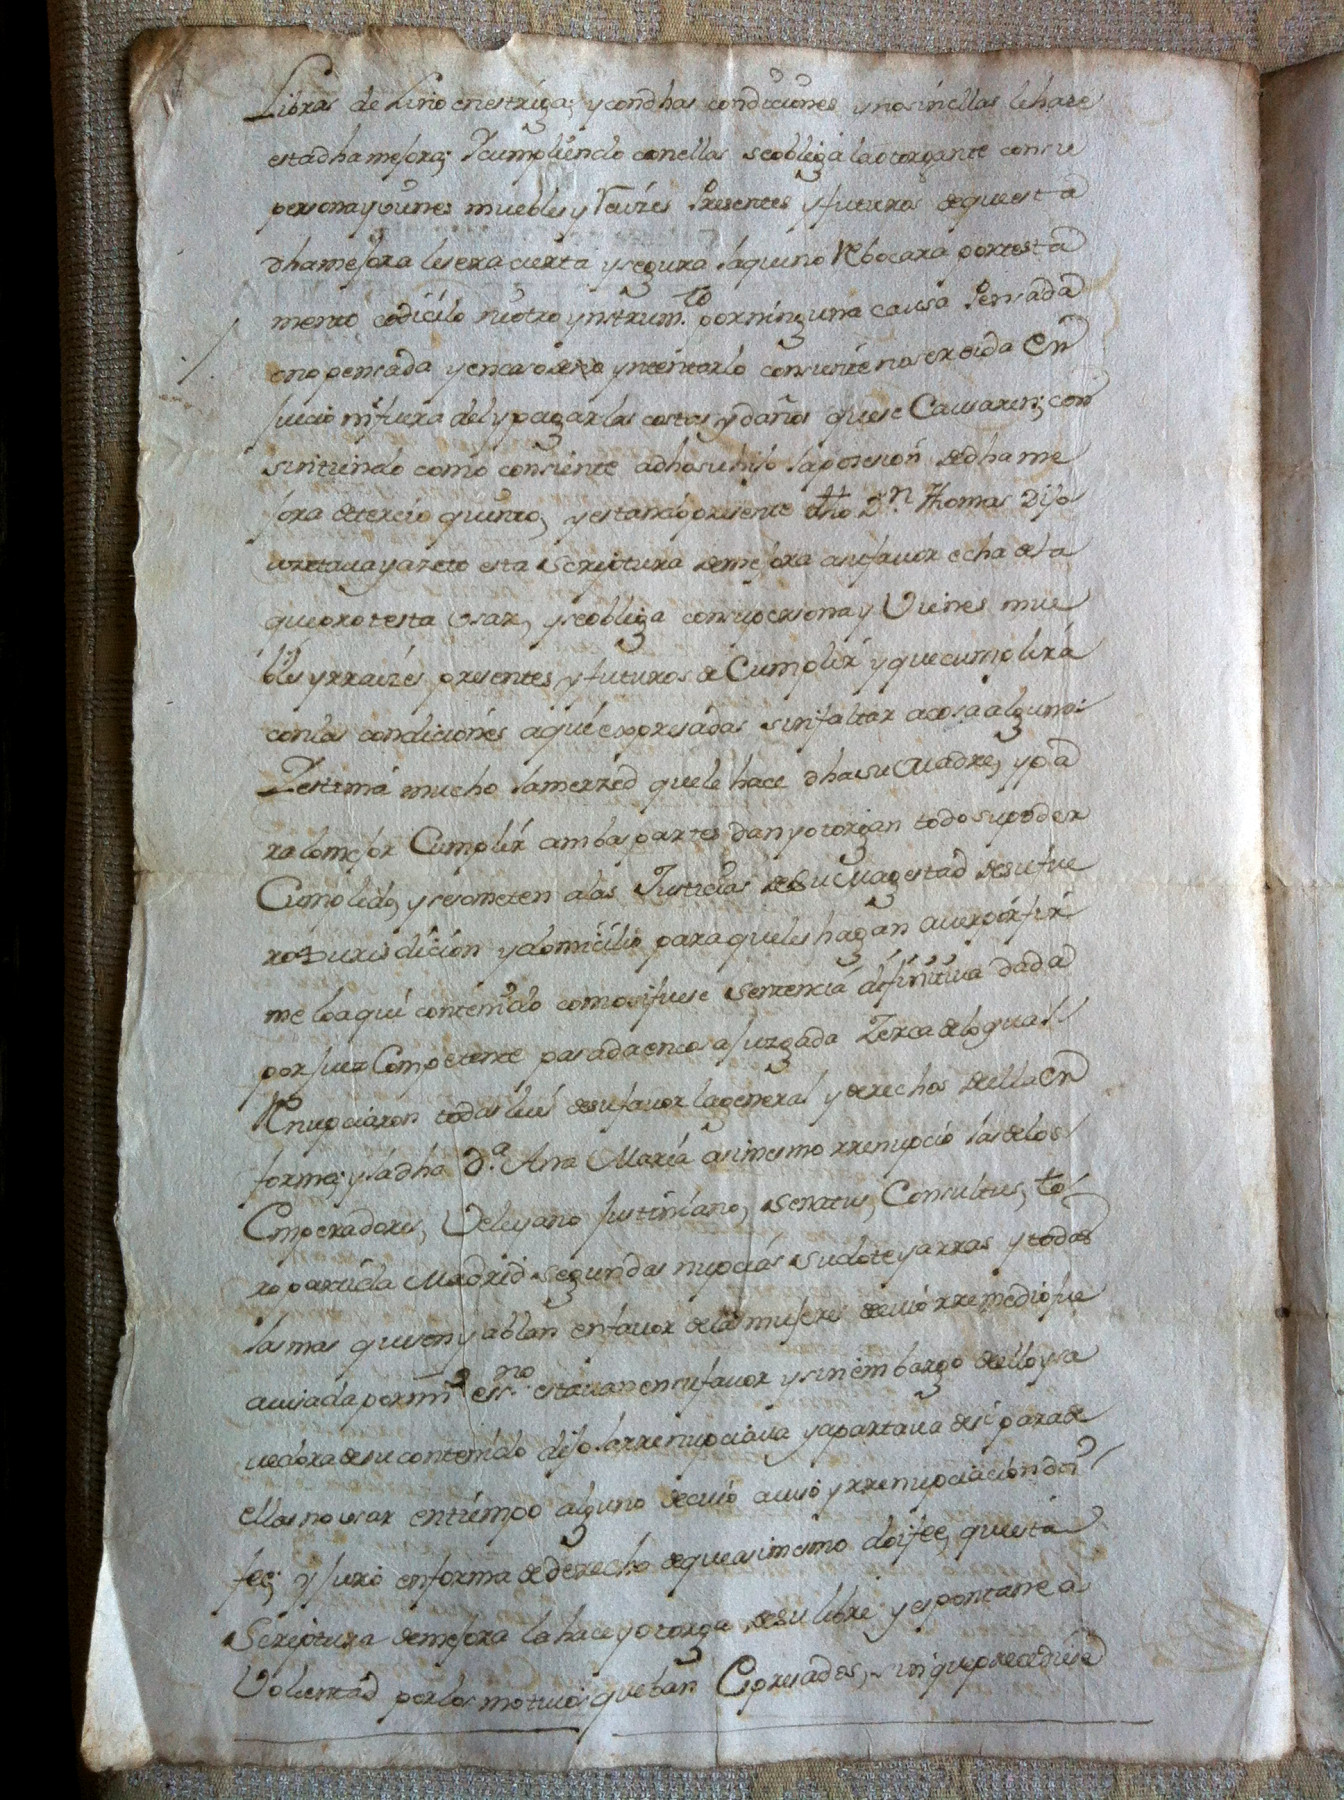 Libras de Lino en estriga; y con dhas condiciones y no sin ellas le hace
esta dha mejora; Y cumpliendo con ellas se obliga la otorgante con su
persona y vienes muebles y Raizes Presentes y futuros de que esta
dha mejora le sera cierta y segura la que no Rebocara por testa
mento codicilo ni otro ynstrum.to por ninguna causa Pensada
o no pensada y en caso de yntentarlo consiente no ser oida En
Juicio ni fuera del y pagar las costas y daños que se Causaren; con
sintiendo como consiente a dho su hijo la posesion de dha me
jora de tercio y quinto, y estando presente dho D.n Thomas Dijo
azetava y azeto esta Scriptura de mejora a su favor echa de la
que protesta Vsar, y se obliga con su persona y Vienes mue
bles y rraizes presentes y futuros de Cumplir y que cumplira
con las condiciones aqui expresadas sin faltar a cosa alguna:
Y estima mucho la merzed que le hace dha su Madre, y pa
ra lo mejor Cumplir ambas partes dan y otorgan todo su poder
Cumplido, y se someten a las Justicias de Su Magestad de su fue
ro Jurisdicion y domicilio para que les hagan aver por fir
me lo aqui contenido como si fuese Sentencia difinitiva dada
por Juez Competente pasada en cosa Juzgada Zerca de lo qual
Renunciaron todas leies de su favor la general y derechos de ella En
forma; y la dha D.a Ana Maria asimesmo rrenuncio las de los
Emperadores, Veleyano Justiniano, Senatus, Consultus, to
ro partida Madrid segundas nupcias su dote y arras y todas
las mas que son y ablan en favor de las mujeres de cuio rremedio fue
auisada por mi ess.no estavan en su favor y sin embargo de ello y sa
vedora de su contenido dijo las rrenunciava y apartava de si para de
ellas no usar en tiempo alguno de cuio auiso y rrenunciacion doi
fee; y Juro en forma de derecho de que asimesmo doi fee, que esta
Scriptura de mejora la hace y otorga de su libre y espontanea
Voluntad por los motivos que ban Expresados, sin que precediese